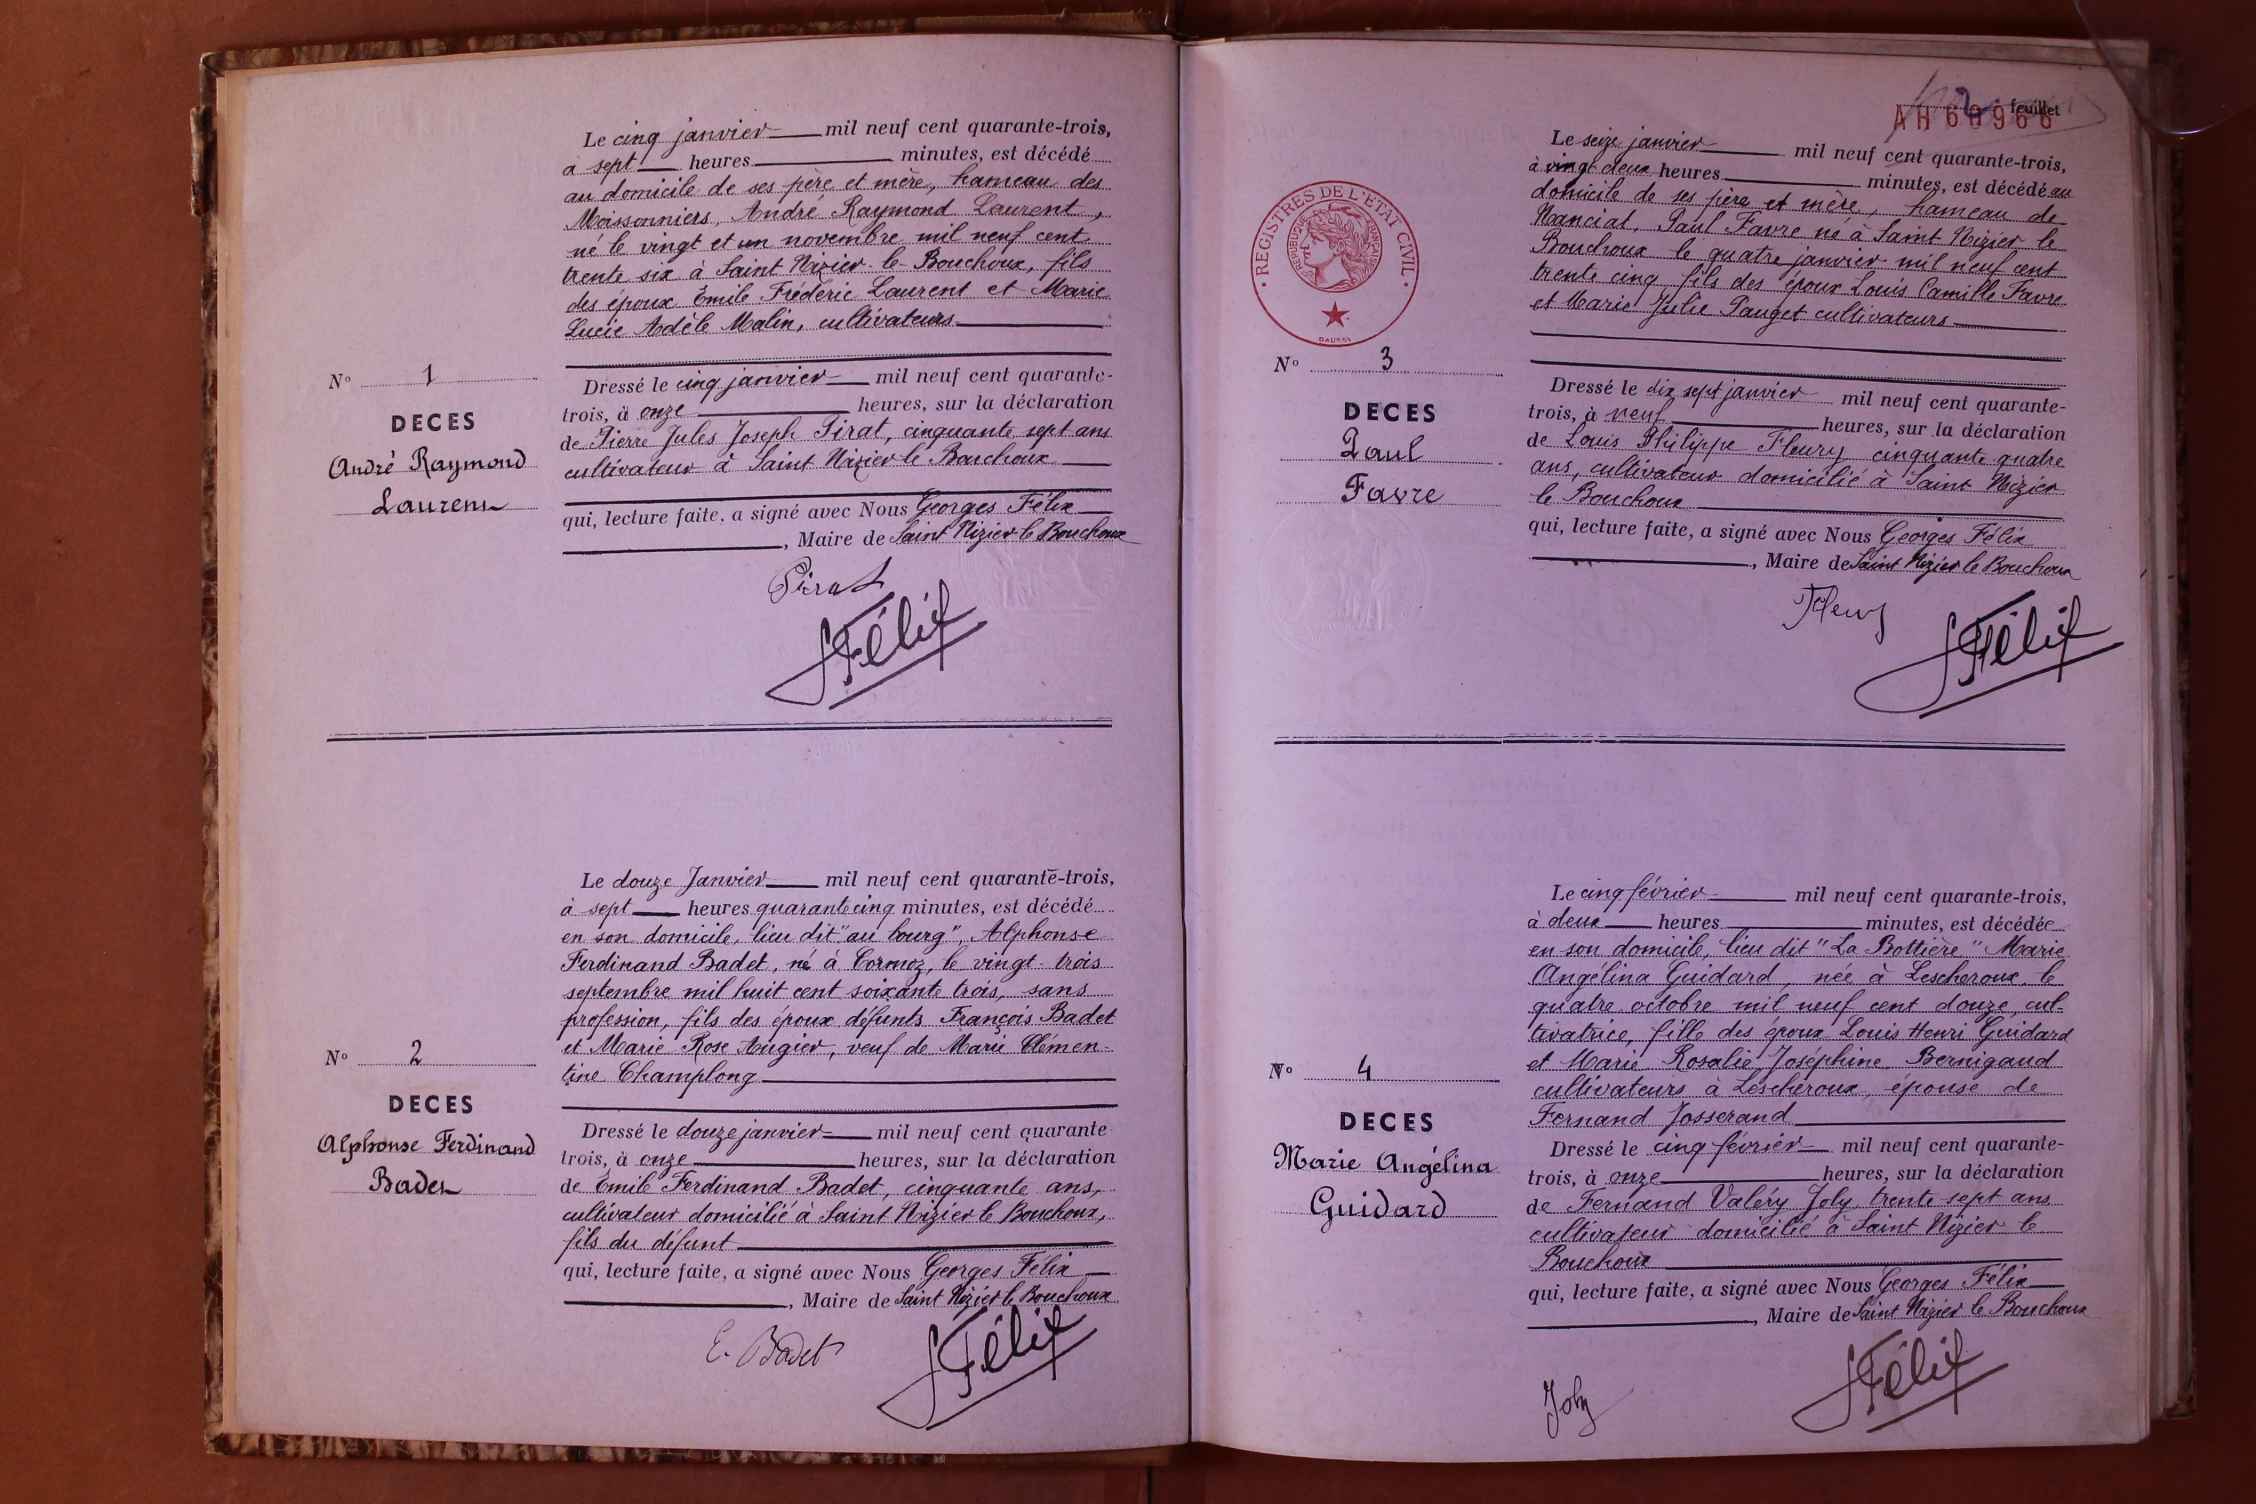 Le cinq janvier mil neuf cent quarante-trois,
à sept heures minutes, est décédé
au domicile de ses père et mère, hameau des
Moissonniers, André Raymond Laurent,
né le vingt et un novembre mil neuf cent
trente six à Saint Nizier le Bouchoux, fils
des époux Émile Fréderic Laurent et Marie
Lucie Adèle Malin, cultivateurs
N° 1
DECES
André Raymond
Laurent
Dressé le cinq janvier mil neuf cent quarante-
trois, à onze heures, sur la déclaration
de Pierre Jules Joseph Pirat, cinquante sept ans
cultivateur à Saint Nizier le Bouchoux
qui, lecture faite, a signé avec Nous Georges Félix
, Maire de Saint Nizier le Bouchoux
Pirat
Félix
Le douze Janvier mil neuf cent quarante-trois,
à sept heures quarante cinq minutes, est décédé
en son domicile, lieu dit "au bourg", Alphonse
Ferdinand Badet, né à Cormoz, le vingt-trois
septembre mil huit cent soixante trois, sans
profession, fils des époux défunts François Badet
et Marie Rose Augier, veuf de Marie Clémen-
tine Champlong
N° 2
DECES
Alphonse Ferdinand
Badet
Dressé le douze janvier mil neuf cent quarante
trois, à onze heures, sur la déclaration
de Émile Ferdinand Badet, cinquante ans,
cultivateur domicilié à Saint Nizier le Bouchoux,
fils du défunt
qui, lecture faite, a signé avec Nous Georges Félix
, Maire de Saint Nizier le Bouchoux
E. Badet
Félix
2 feuillet
AH 60966
REGISTRES DE L'ETAT CIVIL
REPUBLIQUE FRANCAISE
Le seize janvier mil neuf cent quarante-trois,
à vingt deux heures minutes, est décédé au
domicile de ses père et mère, hameau de
Nanciat, Paul Favre né à Saint Nizier le
Bouchoux le quatre janvier mil neuf cent
trente cinq fils des époux Louis Camille Favre
et Marie Julie Pauget cultivateurs
N° 3
DECES
Paul
Favre
Dressé le dix sept janvier mil neuf cent quarante-
trois, à neuf heures, sur la déclaration
de Louis Philippe Fleury cinquante quatre
ans, cultivateur domicilié à Saint Nizier
le Bouchoux
qui, lecture faite, a signé avec Nous Georges Félix
, Maire de Saint Nizier le Bouchoux
Fleury
Félix
Le cinq février mil neuf cent quarante-trois,
à deux heures minutes, est décédée
en son domicile, lieu dit "La Bottière" Marie
Angélina Guidard, née à Lescheroux, le
quatre octobre mil neuf cent douze, cul-
tivatrice, fille des époux Louis Henri Guidard
et Marie Rosalie Joséphine Bernigaud
cultivateurs à Lescheroux, épouse de
Fernand Josserand
N° 4
DECES
Marie Angélina
Guidard
Dressé le cinq février mil neuf cent quarante-
trois, à onze heures, sur la déclaration
de Fernand Valéry Joly, trente-sept ans
cultivateur domicilié à Saint Nizier le
Bouchoux
qui, lecture faite, a signé avec Nous Georges Félix
, Maire de Saint Nizier le Bouchoux
Joly
Félix